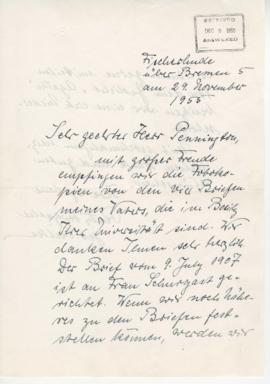 RECEIVED
DEC 5 1955
ANSWERED
Fischerhude
über Bremen 5
am 29. November
1955
Sehr geehrter Herr Pennington,
mit großer Freude
empfingen wir die Fotoko-
pien von den vier Briefen
meines Vaters, die im Besitz
Ihrer Universität sind. Wir
danken Ihnen sehr herzlich.
Der Brief vom 9. July 1907
ist an Frau Schurgast ge-
richtet. Wenn wir noch nähe-
res zu den Briefen fest-
stellen können, werden wir